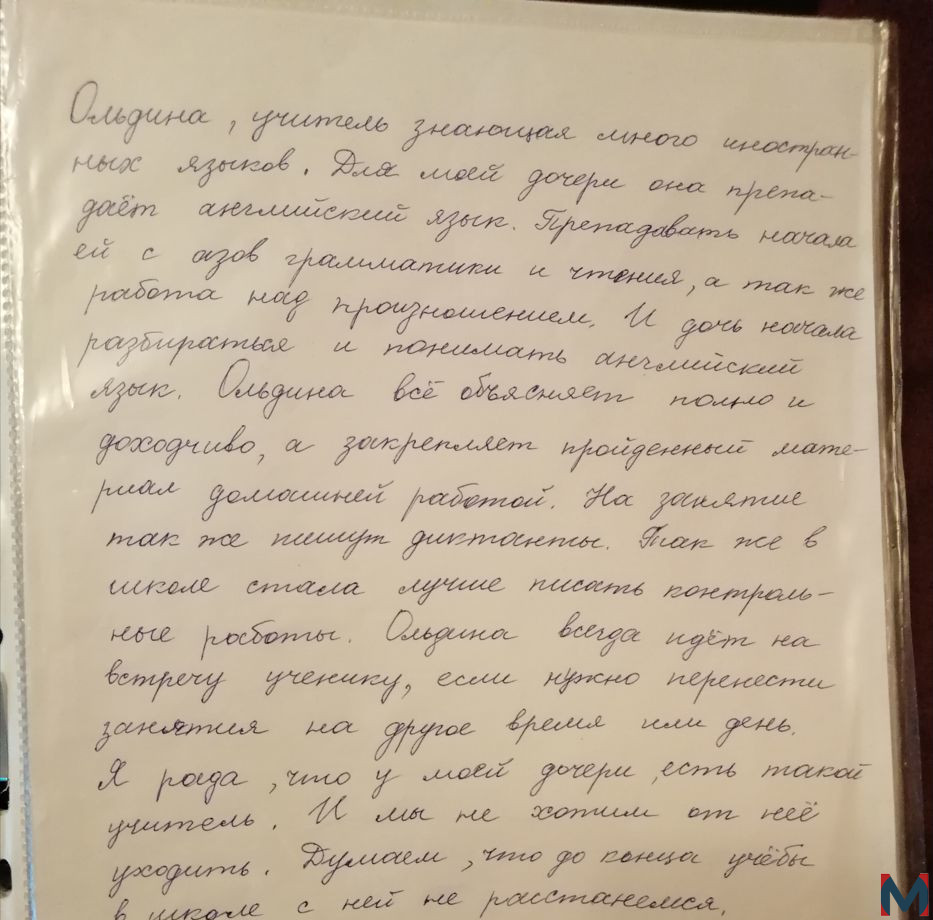 Ольдина, учитель знающая много иностран-
ных языков. Для моей дочери она препа-
даёт английский язык. Препадовать начала
ей с азов грамматики и чтения, а так же
работа над произношением. И дочь начала
разбираться и понимать английский
язык. Ольдина всё объясняет полно и
доходчиво, а закрепляет пройденный мате-
риал домашней работой. На занятие
так же пишут диктанты. Так же в
школе стала лучше писать контроль-
ные работы. Ольдина всегда идёт на
встречу ученику, если нужно перенести
занятия на другое время или день.
Я рада, что у моей дочери есть такой
учитель. И мы не хотим от неё
уходить. Думаем, что до конца учёбы
в школе с ней не расстанемся.
M